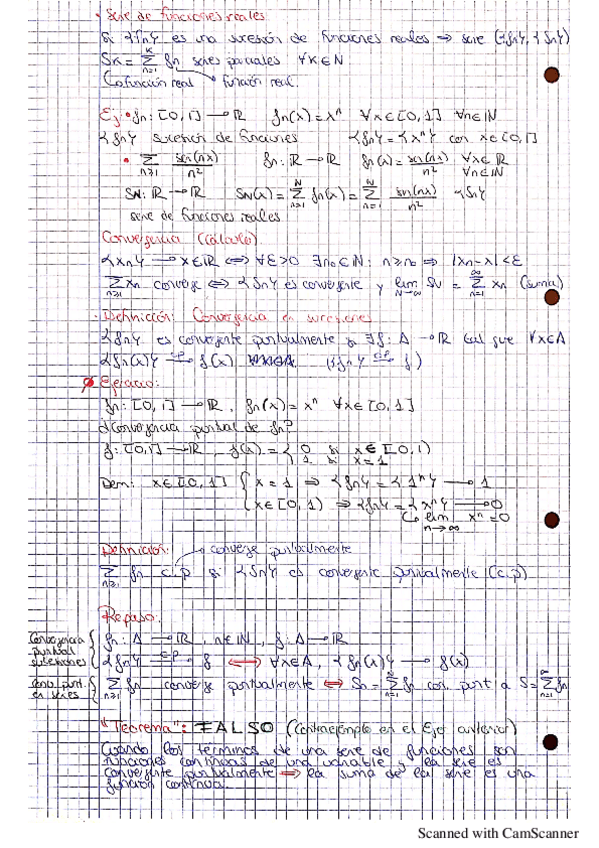 · Serie de funciones reales
Si {fn} es una sucesión de funciones reales ⇒ serie ({fn}, {Sn})
Sk = ∑ₙ₌₁ᵏ fn series parciales ∀k∈ℕ
función real función real.
Ej • fn: [0,1] → ℝ fn(x) = xⁿ ∀x∈[0,1] ∀n∈ℕ
{fn} sucesión de funciones {fn} = {xⁿ} con x∈[0,1]
• ∑ₙ≥₁ sen(nx)/n² fn: ℝ → ℝ fn(x) = sen(nx)/n² ∀x∈ℝ ∀n∈ℕ
SN: ℝ → ℝ SN(x) = ∑ₙ₌₁ᴺ fn(x) = ∑ₙ₌₁ᴺ sen(nx)/n² {Sn}
serie de funciones reales
Convergencia (Cálculo)
{xn} → x∈ℝ ⇔ ∀ε>0 ∃n₀∈ℕ: n≥n₀ ⇒ |xn-x|<ε
∑ₙ≥₁ xn converge ⇔ {Sn} es convergente y lim N→∞ SN = ∑ₙ₌₁^∞ xn (suma)
· Definición: Convergencia en sucesiones
{fn} es convergente puntualmente si ∃f: A → ℝ tal que ∀x∈A
{fn(x)} → f(x) ({fn} → f)
Ejercicio:
fn: [0,1] → ℝ, fn(x) = xⁿ ∀x∈[0,1]
¿Convergencia puntual de fn?
f: [0,1] → ℝ, f(x) = { 0 si x∈[0,1)
1 si x=1
Dem: x∈[0,1] { x=1 ⇒ {fn} = {1ⁿ} → 1
x∈[0,1) ⇒ {fn} = {xⁿ} → 0
lim n→∞ xⁿ = 0
Definición: converge puntualmente
∑ₙ≥₁ fn c.p si {Sn} es convergente puntualmente (c.p)
Repaso:
Convergencia puntual sucesiones { fn: A → ℝ, n∈ℕ, f: A → ℝ
{fn} c.p→ f ⟺ ∀x∈A, {fn(x)} → f(x)
Conv. punt en series { ∑ₙ≥₁ fn converge puntualmente ⟺ Sn = ∑ fn con. punt a S = ∑ fn
"Teorema": FALSO (Contraejemplo en el Ejer anterior)
Cuando los términos de una serie de funciones son
funciones continuas de una variable y la serie es
convergente puntualmente ⇒ la suma de la serie es una
función continua.
Scanned with CamScanner